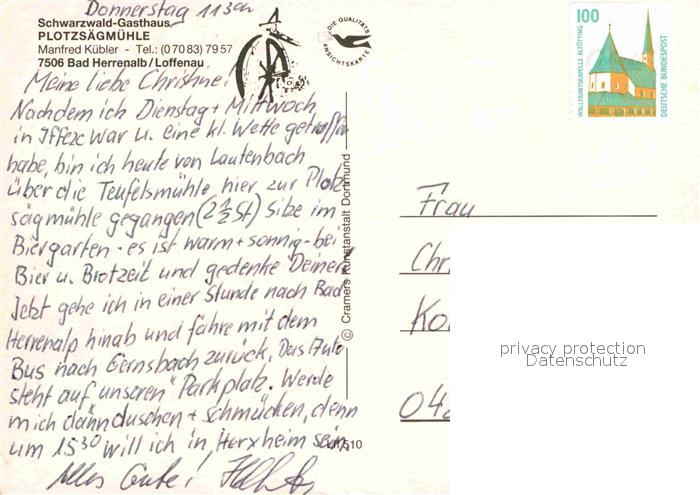 Donnerstag 11 30h
Schwarzwald-Gasthaus
PLOTZSÄGMÜHLE
Manfred Kübler - Tel.: (0 70 83) 79 57
7506 Bad Herrenalb/Loffenau
DIE QUALITÄTS
ANSICHTSKARTE
100
WALLFAHRTSKAPELLE ALTÖTTING
DEUTSCHE BUNDESPOST
Meine liebe Christine!
Nachdem ich Dienstag + Mittwoch
in Iffezc war u. eine kl. Wette getroffen
habe, bin ich heute von Lautenbach
über die Teufelsmühle hier zur Plotz
sägmühle gegangen (2 1/2 St) Sitze im
Biergarten - es ist warm + sonnig - bei
Bier u. Brotzeit und gedenke Deiner.
Jetzt gehe ich in einer Stunde nach Bad
Herrenalp hinab und fahre mit dem
Bus nach Gernsbach zurück. Das Auto
steht auf "unseren" Parkplatz. Werde
mich dann duschen + schmücken, denn
um 15 30 will ich in Herxheim sein
Alles Gute!
© Cramers Kunstanstalt Dortmund
510
Frau
Chr
Ko
04
privacy protection
Datenschutz